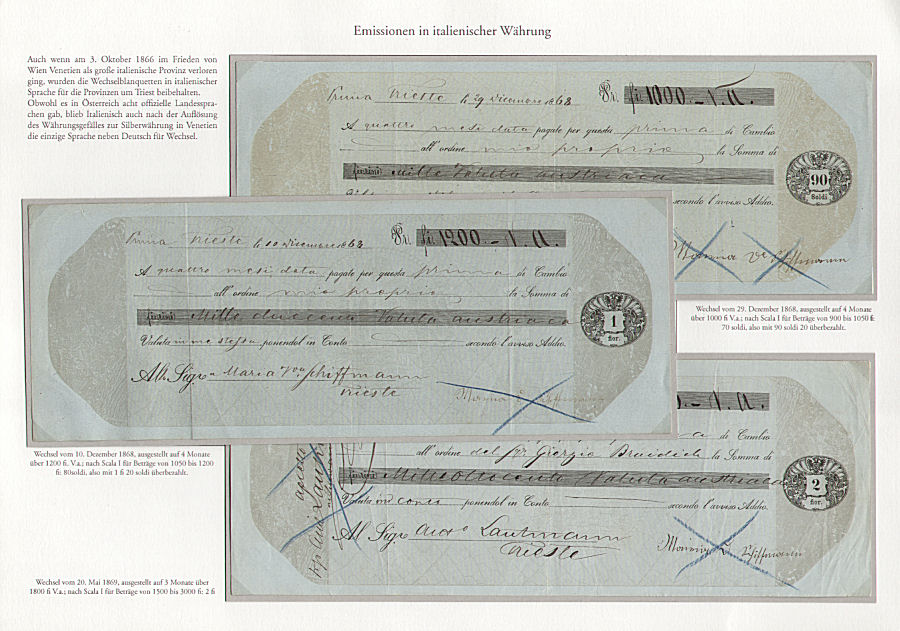 Emissionen in italienischer Währung
Auch wenn am 3. Oktober 1866 im Frieden von
Wien Venetien als große italienische Provinz verloren
ging, wurden die Wechselblanquetten in italienischer
Sprache für die Provinzen um Triest beibehalten.
Obwohl es in Österreich acht offizielle Landesspra-
chen gab, blieb Italienisch auch nach der Auflösung
des Währungsgefälles zur Silberwährung in Venetien
die einzige Sprache neben Deutsch für Wechsel.
Prima Trieste li 29 Dicembre 1868 Pr. fi 1000.-V.A.
A quattro mesi data pagate per questa prima di Cambio
all'ordine mio proprio la Somma di
fiorini Mille Valuta austriaca
secondo l'avviso Addio.
90
Soldi
Wechsel vom 29. Dezember 1868, ausgestellt auf 4 Monate
über 1000 fi V.a.; nach Scala I für Beträge von 900 bis 1050 fi:
70 soldi, also mit 90 soldi 20 überbezahlt.
Prima Trieste li 10 Dicembre 1868 Pr. fi 1200.-V.A.
A quattro mesi data pagate per questa prima di Cambio
all'ordine mio proprio la Somma di
fiorini Mille duecento Valuta austriaca
Valuta in me stesso ponendol in Conto secondo l'avviso Addio.
1
fior.
Al Sigr Maria Schiffmann
Trieste
Wechsel vom 10. Dezember 1868, ausgestellt auf 4 Monate
über 1200 fi. V.a.; nach Scala I für Beträge von 1050 bis 1200
fi: 80soldi, also mit 1 fi 20 soldi überbezahlt.
.-V.A.
di Cambio
all'ordine del Sr Giorgio la Somma di
fiorini Milleottocento Valuta austriaca
Valuta in conto ponendol in Conto secondo l'avviso Addio.
2
fior.
Al Sigr Lautmann
Trieste
Wechsel vom 20. Mai 1869, ausgestellt auf 3 Monate über
1800 fi V.a.; nach Scala I für Beträge von 1500 bis 3000 fi: 2 fi